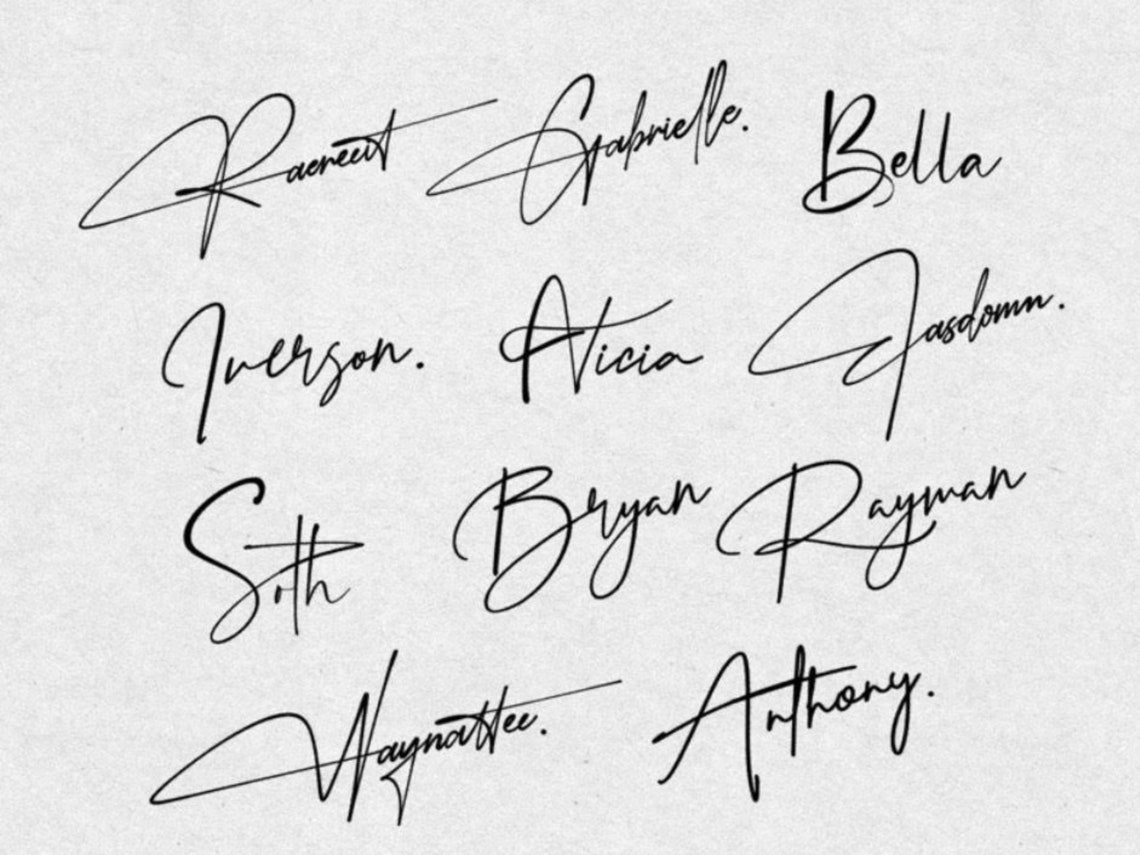 Gabrielle. Bella
Iverson. Alicia Jasdomn.
Bryan Rayman
Waynattee. Anthony.